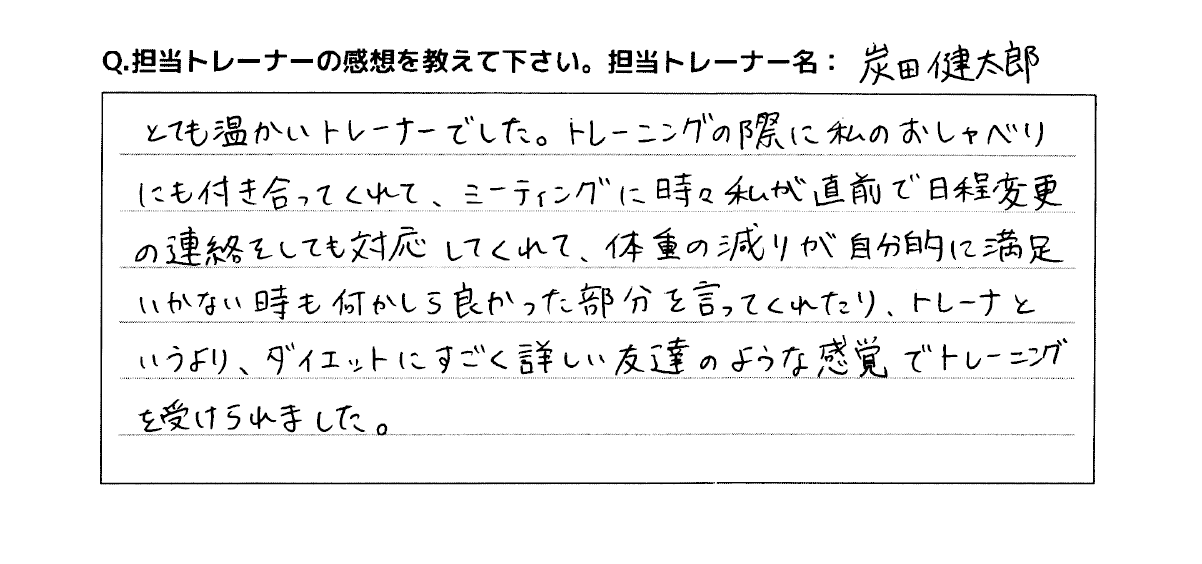 Q.担当トレーナーの感想を教えて下さい。担当トレーナー名： 炭田健太郎
とても温かいトレーナーでした。トレーニングの際に私のおしゃべり
にも付き合ってくれて、ミーティングに時々私が直前で日程変更
の連絡をしても対応してくれて、体重の減りが自分的に満足
いかない時も何かしら良かった部分を言ってくれたり、トレーナと
いうより、ダイエットにすごく詳しい友達のような感覚でトレーニング
を受けられました。